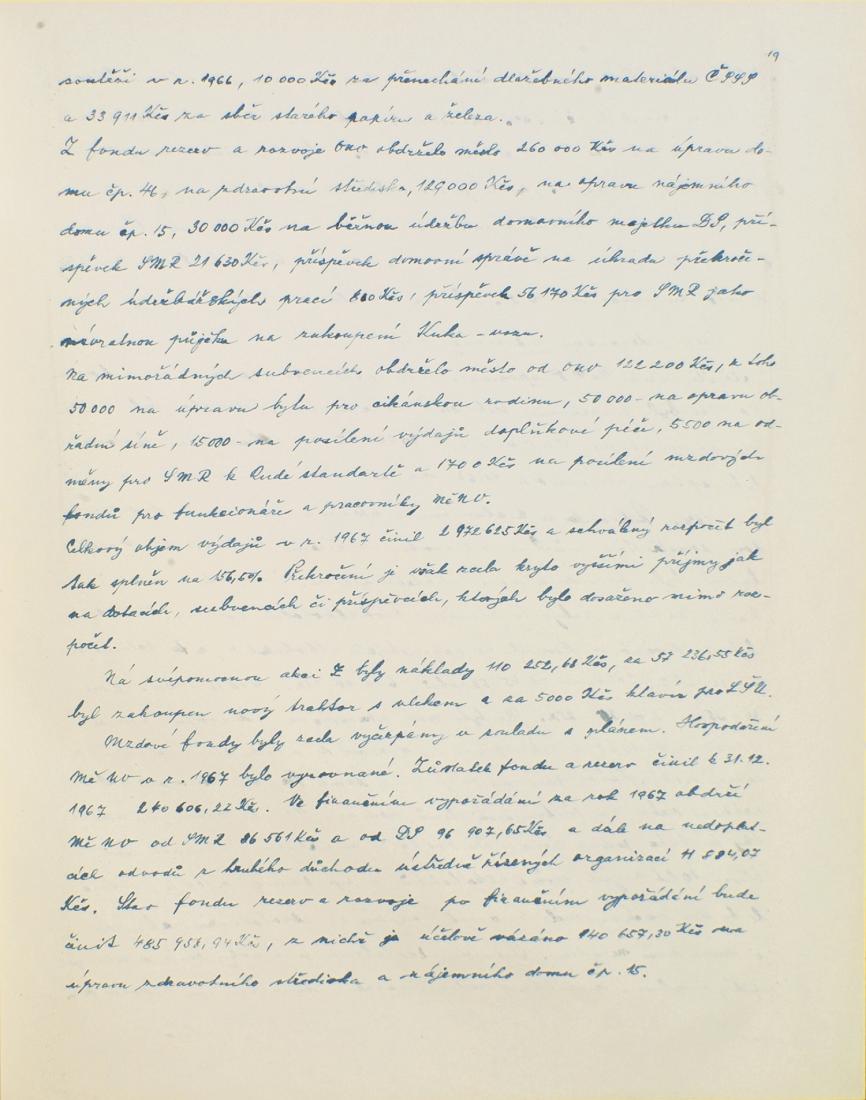 19
soutěži v r. 1966, 10 000 Kčs za přenechání dlažebného materiálu ČSSS
a 33 911 Kčs za sběr starého papíru a železa.
Z fondu rezerv a rozvoje ONV obdrželo město 260 000 Kčs na úpravu do-
mu čp. 46, na zdravotní středisko, 129 000 Kčs, na opravu nájemního
domu čp. 15, 30 000 Kčs na běžnou údržbu domovního majetku DS, pří-
spěvek SMR 21 630 Kčs, příspěvek domovní správě na úhradu překroče-
ných údržbářských prací 800 Kčs, příspěvek 56 170 Kčs pro SMR jako
návratnou půjčku na zakoupení Kuka-vozu.
Na mimořádných subvencích obdrželo město od ONV 122 200 Kčs, z toho
50 000 na úpravu bytu pro cikánskou rodinu, 50 000 - na opravu ob-
řadní síně, 15 000 - na posílení výdajů doplňkové péče, 5 500 na od-
měny pro SMR k Rudé standartě a 1700 Kčs na posílení mzdových
fondů pro funkcionáře a pracovníky MěNV.
Celkový objem výdajů v r. 1967 činil 2 972 625 Kčs a schválený rozpočet byl
tak splněn na 156,5%. Překročení je však zcela kryto vyššími příjmy jak
na dotacích, subvencích či příspěvcích, kterých bylo dosaženo mimo roz-
počet.
Na svépomocnou akci Z byly náklady 110 252,68 Kčs, za 57 236,55 Kčs
byl zakoupen nový traktor s vlekem a za 5000 Kčs klavír pro LŠU.
Mzdové fondy byly zcela vyčerpány v souladu s plánem. Hospodaření
MěNV v r. 1967 bylo vyrovnané. Zůstatek fondu a rezerv činil k 31.12.
1967 240 606,22 Kčs. Ve finančním vypořádání za rok 1967 obdrží
MěNV od SMR 86 561 Kčs a od DS 96 907,65 Kčs a dále na nedoplat-
cích odvodů z hrubého důchodu ústředně řízených organizací 11 884,07
Kčs. Stav fondu rezerv a rozvoje po finančním vypořádání bude
činit 485 958,94 Kčs, z nichž je účelově vázáno 140 657,30 Kčs na
úpravu zdravotního střediska a nájemního domu čp. 15.